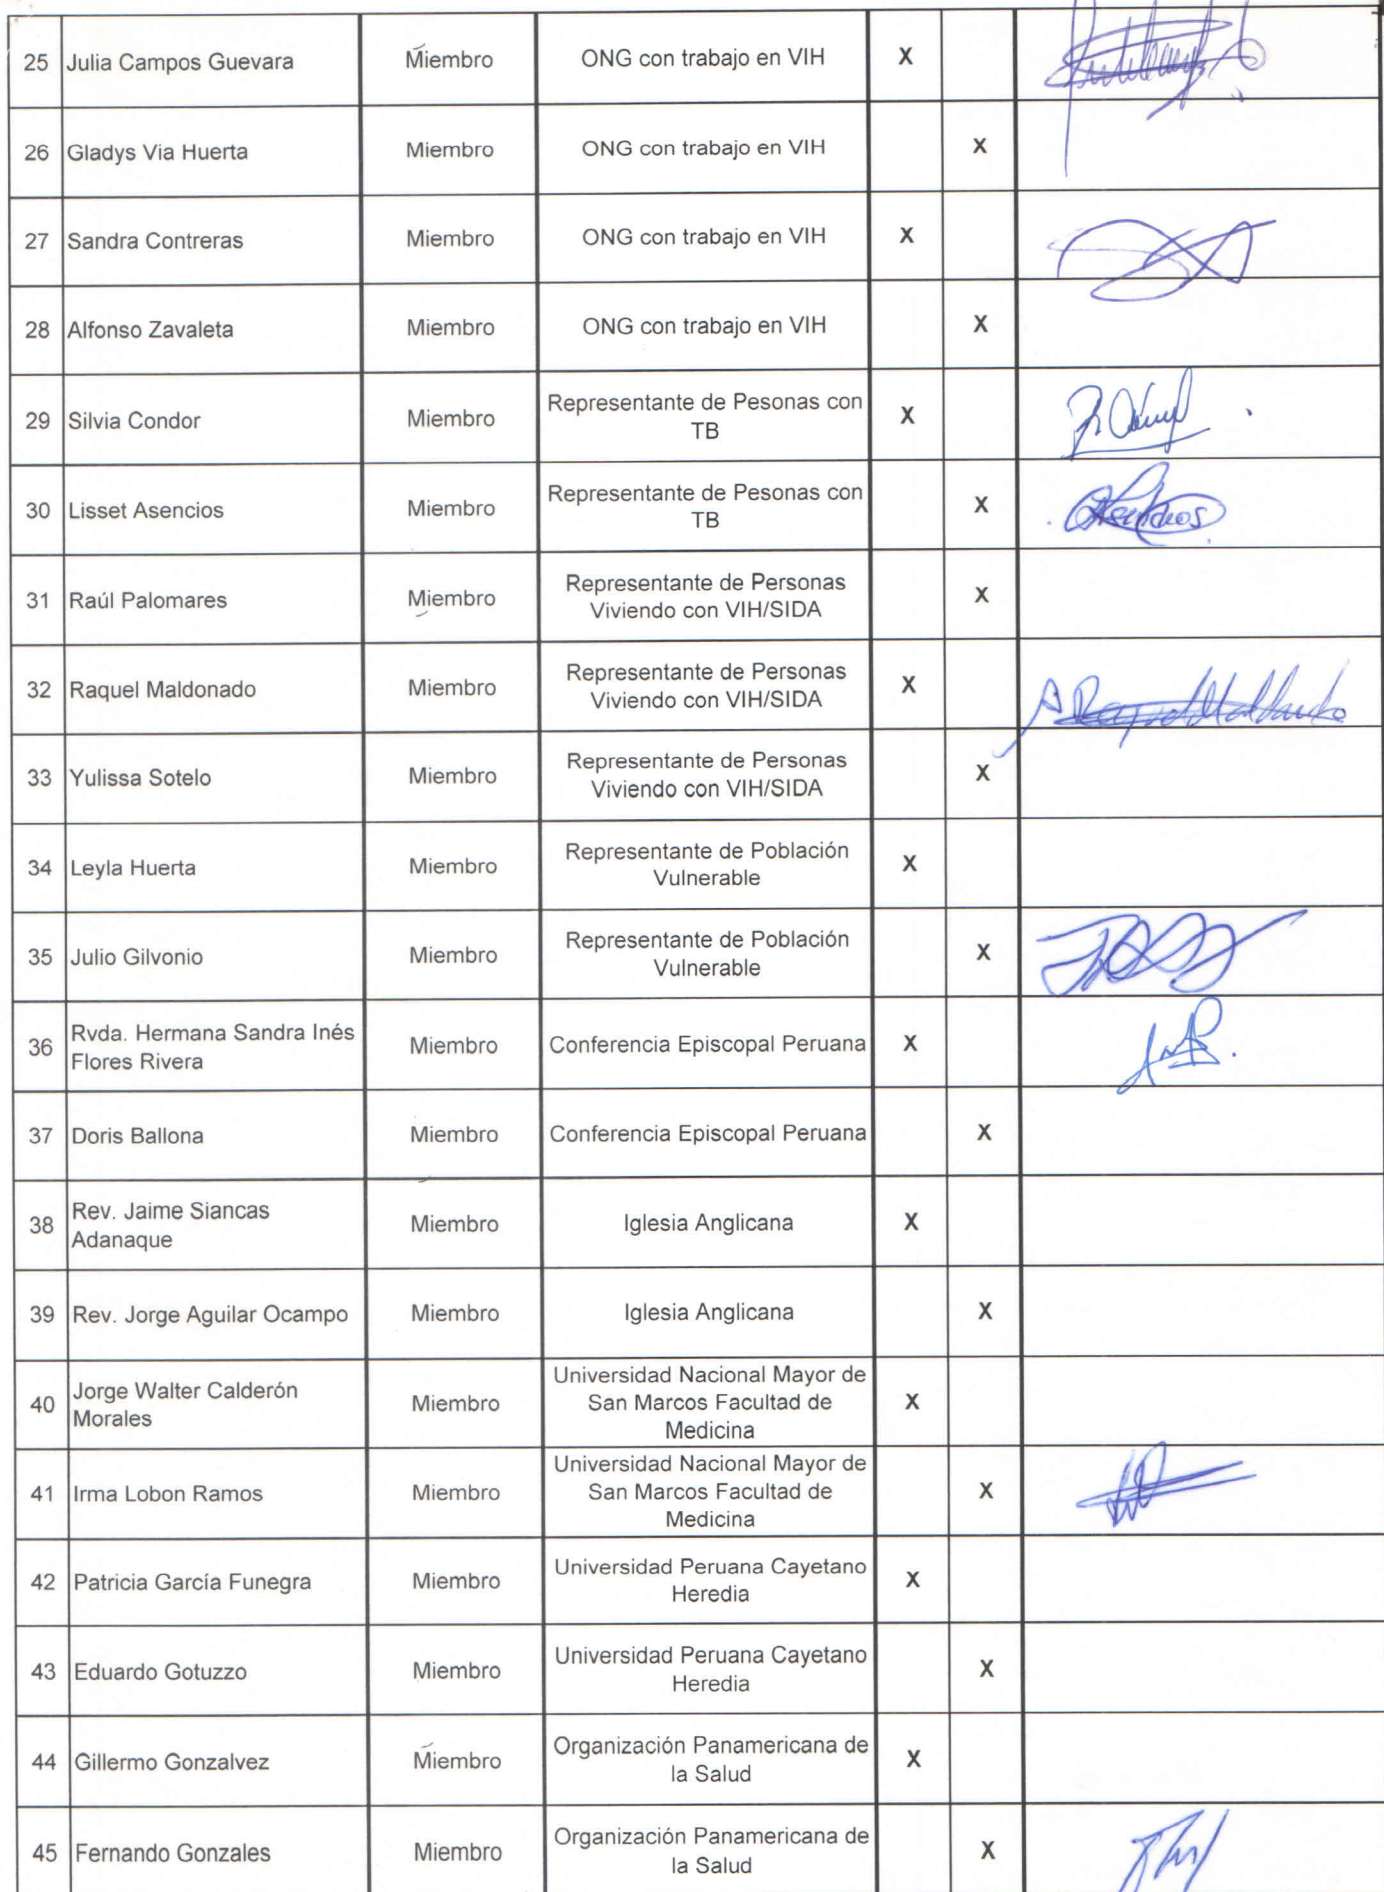 25 Julia Campos Guevara Miembro ONG con trabajo en VIH X
26 Gladys Via Huerta Miembro ONG con trabajo en VIH X
27 Sandra Contreras Miembro ONG con trabajo en VIH X
28 Alfonso Zavaleta Miembro ONG con trabajo en VIH X
29 Silvia Condor Miembro Representante de Pesonas con
TB X
30 Lisset Asencios Miembro Representante de Pesonas con
TB X
31 Raúl Palomares Miembro Representante de Personas
Viviendo con VIH/SIDA X
32 Raquel Maldonado Miembro Representante de Personas
Viviendo con VIH/SIDA X
33 Yulissa Sotelo Miembro Representante de Personas
Viviendo con VIH/SIDA X
34 Leyla Huerta Miembro Representante de Población
Vulnerable X
35 Julio Gilvonio Miembro Representante de Población
Vulnerable X
36 Rvda. Hermana Sandra Inés
Flores Rivera Miembro Conferencia Episcopal Peruana X
37 Doris Ballona Miembro Conferencia Episcopal Peruana X
38 Rev. Jaime Siancas
Adanaque Miembro Iglesia Anglicana X
39 Rev. Jorge Aguilar Ocampo Miembro Iglesia Anglicana X
40 Jorge Walter Calderón
Morales Miembro Universidad Nacional Mayor de
San Marcos Facultad de
Medicina X
41 Irma Lobon Ramos Miembro Universidad Nacional Mayor de
San Marcos Facultad de
Medicina X
42 Patricia García Funegra Miembro Universidad Peruana Cayetano
Heredia X
43 Eduardo Gotuzzo Miembro Universidad Peruana Cayetano
Heredia X
44 Gillermo Gonzalvez Miembro Organización Panamericana de
la Salud X
45 Fernando Gonzales Miembro Organización Panamericana de
la Salud X